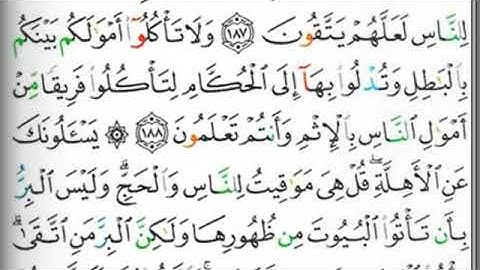 لِلنَّاسِ لَعَلَّهُمْ يَتَّقُونَ ١٨٧ وَلَا تَأْكُلُوٓا۟ أَمْوَٰلَكُم بَيْنَكُم
بِٱلْبَٰطِلِ وَتُدْلُوا۟ بِهَآ إِلَى ٱلْحُكَّامِ لِتَأْكُلُوا۟ فَرِيقًا مِّنْ
أَمْوَٰلِ ٱلنَّاسِ بِٱلْإِثْمِ وَأَنتُمْ تَعْلَمُونَ ١٨٨ ۞ يَسْـَٔلُونَكَ
عَنِ ٱلْأَهِلَّةِ ۖ قُلْ هِىَ مَوَٰقِيتُ لِلنَّاسِ وَٱلْحَجِّ ۗ وَلَيْسَ ٱلْبِرُّ
بِأَن تَأْتُوا۟ ٱلْبُيُوتَ مِن ظُهُورِهَا وَلَٰكِنَّ ٱلْبِرَّ مَنِ ٱتَّقَىٰ ۗ